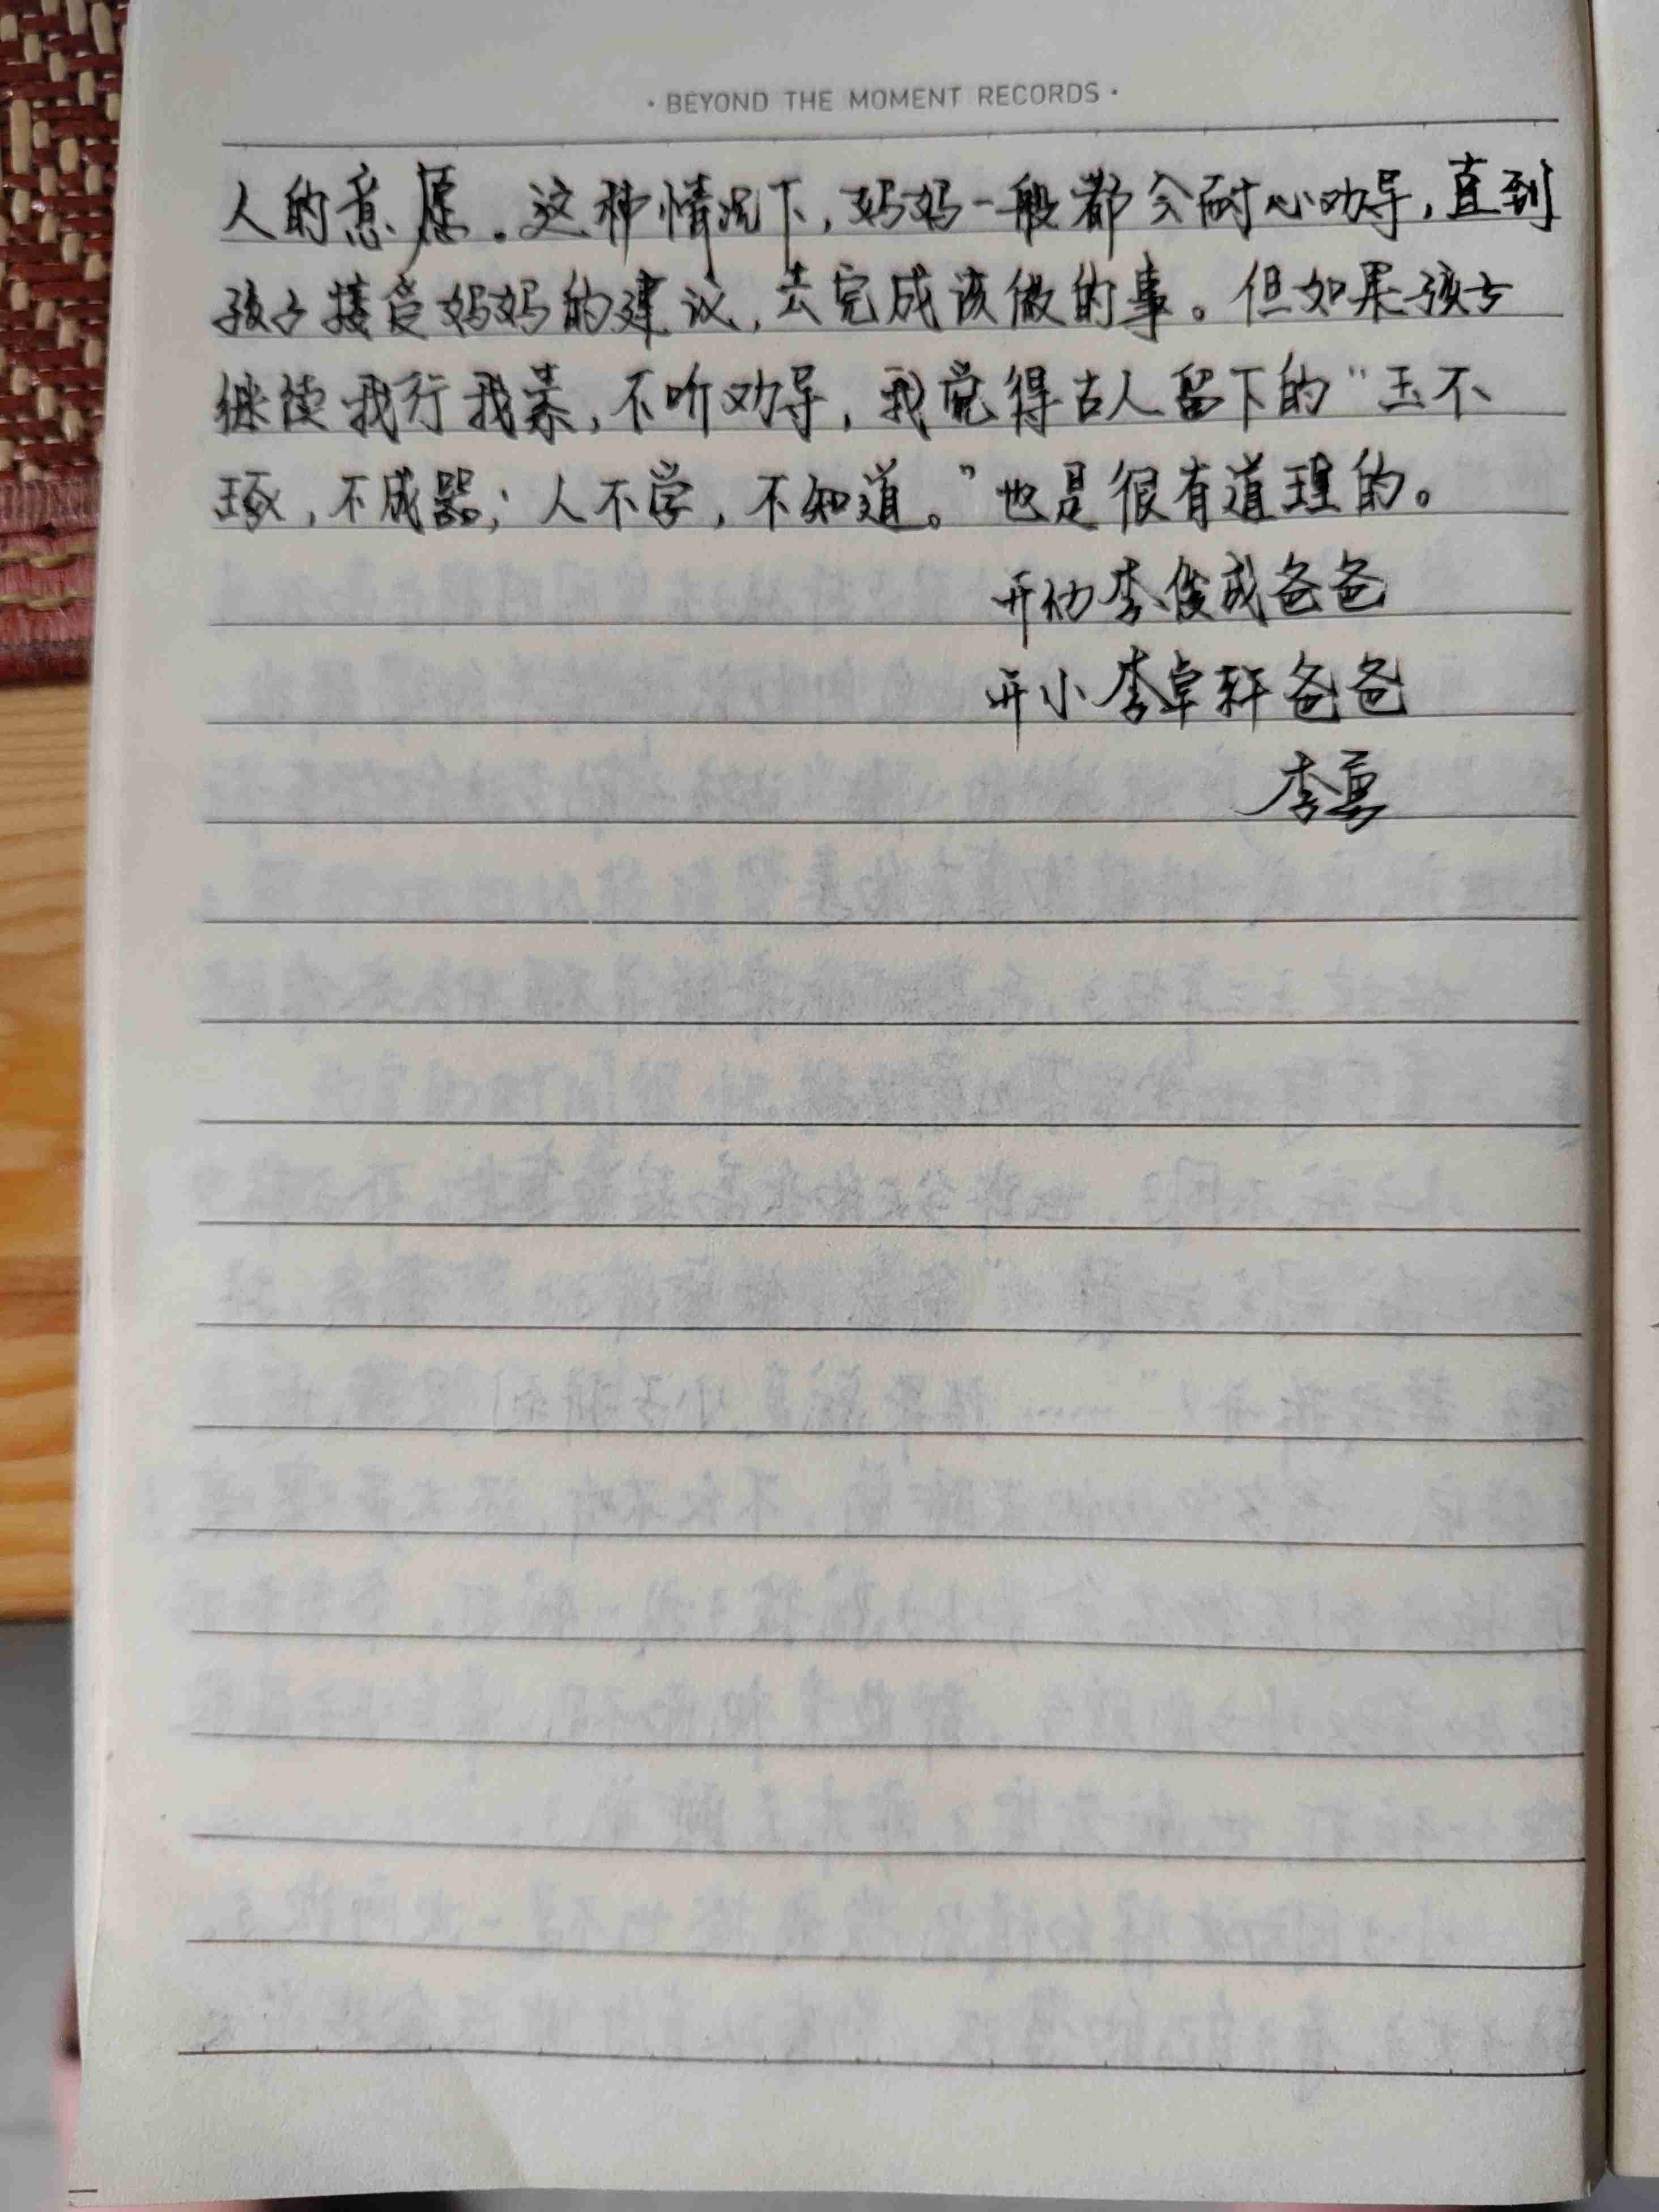 · BEYOND THE MOMENT RECORDS ·
人的意愿。这种情况下，妈妈一般都会耐心劝导，直到
孩子接受妈妈的建议，去完成该做的事。但如果孩子
继续我行我素，不听劝导，我觉得古人留下的“玉不
琢，不成器；人不学，不知道。”也是很有道理的。
开幼李俊成爸爸
开小李卓轩爸爸
李勇